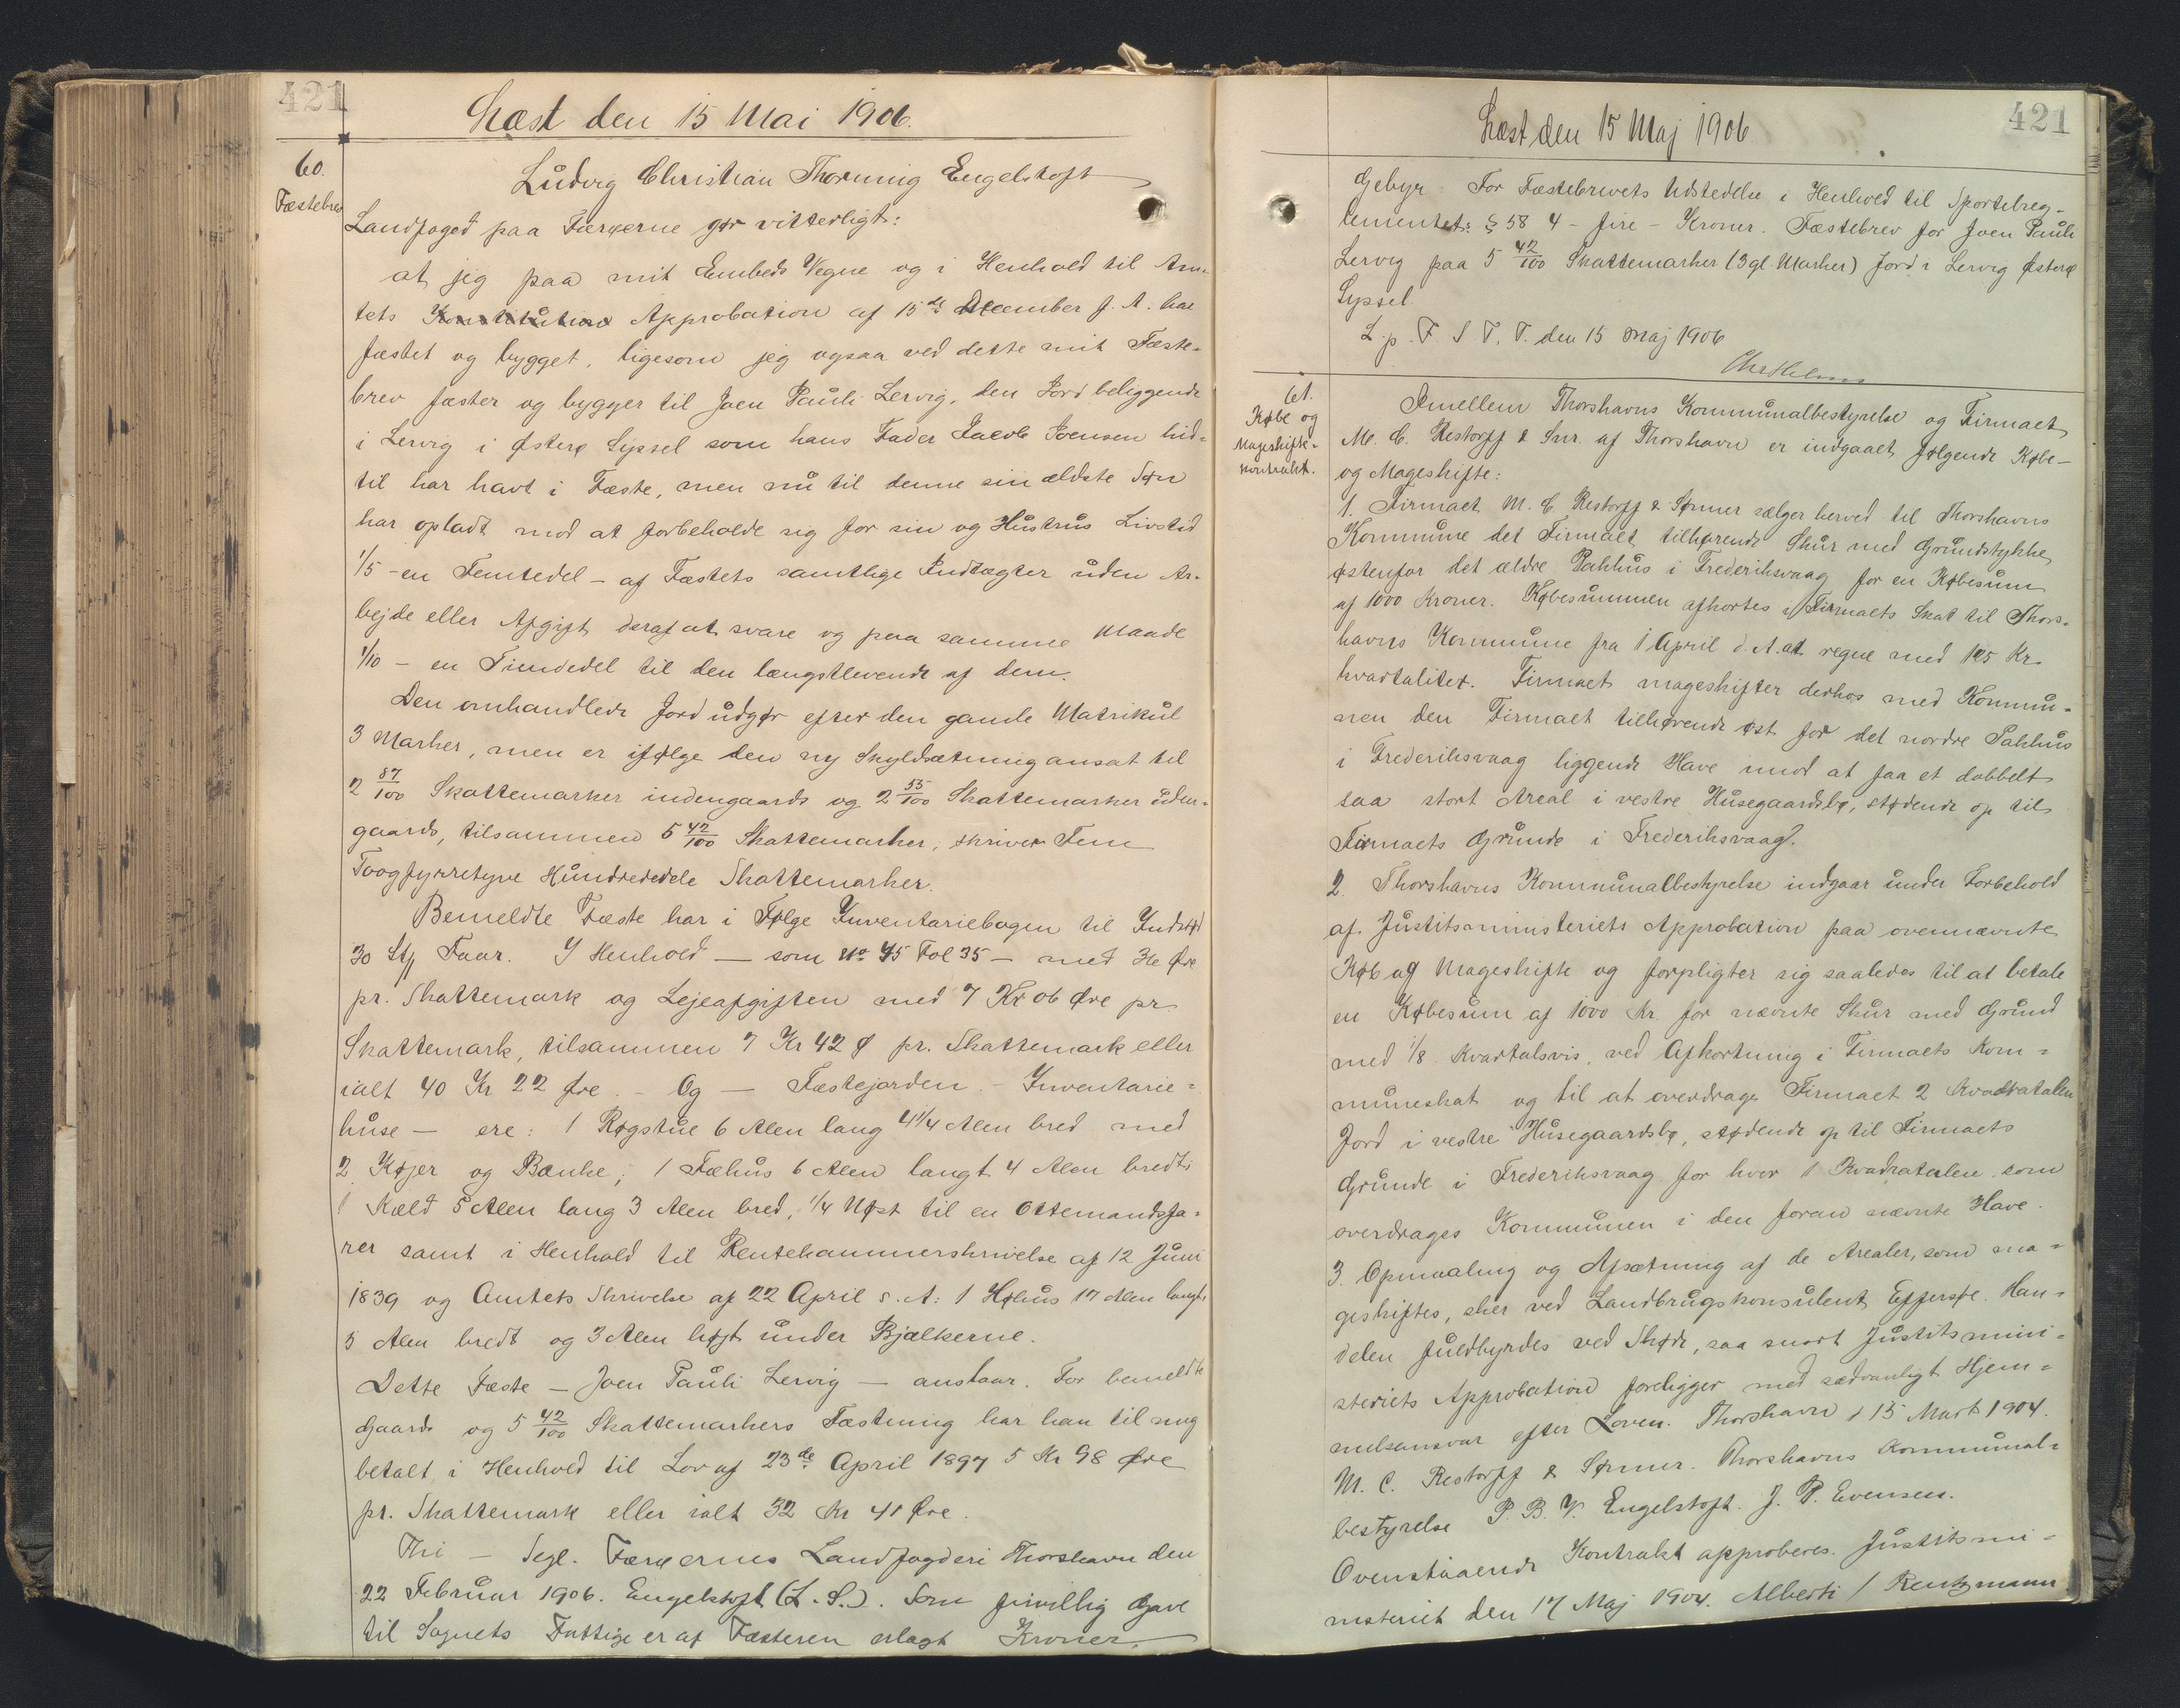 421
Læst den 15 Mai 1906.
60.
Fæstebrev
Ludvig Christian Thorning Engelstoft
Landfoged paa Færøerne gør vitterligt:
at jeg paa mit Embeds Vegne og i Henhold til Am-
tets Konstitution Approbation af 15de December f. A. har
fæstet og bygget, ligesom jeg ogsaa ved dette mit Fæste-
brev fæster og bygger til Joen Pauli Lervig, den Jord beliggende
i Lervig i Østerø Syssel som hans Fader Jacob Joensen hid-
til har havt i Fæste, men nu til denne sin ældste Søn
har opladt mod at forbeholde sig for sin og Hustrus Livstid
1/5 - en Femtedel - af Fæstets samtlige Indtægter uden Ar-
bejde eller Afgift deraf at svare og paa samme Maade
1/10 - en Tiendedel til den længstlevende af dem.
Den omhandlede Jord udgør efter den gamle Matrikul
3 Marker, men er ifølge den ny Skyldsætning ansat til
2 87/100 Skattemarker indengaards og 2 55/100 Skattemarker uden-
gaards, tilsammen 5 42/100 Skattemarker, skriver Fem
Toogfyrretyve Hundrededele Skattemarker.
Bemeldte Fæste har i Følge Inventariebogen til Indstød
30 Stk Faar. I Henhold — som No 45 Fol 35 — med 36 Øre
pr. Skattemark og Lejeafgiften med 7 Kr 06 Øre pr.
Skattemark, tilsammen 7 Kr 42 Ø pr. Skattemark eller
ialt 40 Kr 22 Øre. - Og — Fæstejorden. - Inventarie=
huse — ere: 1 Røgstue 6 Alen lang 4 1/4 Alen bred med
2 Køjer og Bænke; 1 Fæhus 6 Alen langt 4 Alen bredt;
1 Kæld 5 Alen lang 3 Alen bred, 1/4 Nøst til en Ottemandsfa=
rer samt i Henhold til Rentekammerskrivelse af 12 Juni
1839 og Amtets Skrivelse af 22 April s. A: 1 Høhus 17 Alen langt,
5 Alen bredt og 3 Alen højt under Bjælkerne.
Dette Fæste — Joen Pauli Lervig — anstaar. For bemeldte
Gaards og 5 42/100 Skattemarkers Fæstning har han til mig
betalt i Henhold til Lov af 23de April 1897 5 Kr 98 Øre
pr. Skattemark eller ialt 32 Kr 41 Øre.
Thi — Segl. Færøernes Landfogderi Thorshavn den
22 Februar 1906. Engelstoft (L. S.). Som frivillig Gave
til Sognets Fattige er af Fæsteren erlagt Kroner.
421
Læst den 15 Maj 1906.
Gebyr: For Fæstebrevets Udstedelse i Henhold til Sportelreg-
lementets § 58 4 - fire - Kroner. Fæstebrev for Joen Pauli
Lervig paa 5 42/100 Skattemarker (3 gl. Marker) Jord i Lervig Østerø
Syssel.
L. p. F S T. T. den 15 Maj 1906
61.
Købe og
Mageskifte-
kontrakt.
Imellem Thorshavns Kommunalbestyrelse og Firmaet
M. C. Restorff & Snr. af Thorshavn er indgaaet følgende Købe-
og Mageskifte:
1. Firmaet M. C. Restorff & Sønner sælger herved til Thorshavns
Kommune det Firmaet tilhørende Skur med Grundstykke
østenfor det ældre Pakhus i Frederiksvaag for en Købesum
af 1000 Kroner. Købesummen afkortes i Firmaets Skat til Thors-
havns Kommune fra 1 April d. A. at regne med 125 Kr.
kvartaliter. Firmaet mageskifter derhos med Kommu-
nen den Firmaet tilhørende øst for det nordre Pakhus
i Frederiksvaag liggende Have mod at faa et dobbelt
saa stort Areal i vestre Husegaardsbø, stødende op til
Firmaets Grunde i Frederiksvaag.
2. Thorshavns Kommunalbestyrelse indgaar under Forbehold
af Justitsministeriets Approbation paa ovennævnte
Køb og Mageskifte og forpligter sig saaledes til at betale
en Købesum af 1000 Kr. for nævnte Skur med Grund
med 1/8 Kvartalsvis, ved Afkortning i Firmaets Kom=
muneskat og til at overdrage Firmaet 2 Kvadratalen
Jord i vestre Husegaardsbø, stødende op til Firmaets
Grunde i Frederiksvaag for hver 1 Kvadratalen som
overdrages Kommunen i den foran nævnte Have.
3. Opmaaling og Afsætning af de Arealer, som ma=
geskiftes, sker ved Landbrugskonsulent Effersøe. Han=
delen fuldbyrdes ved Skøde, saa snart Justitsmini=
steriets Approbation foreligger med sædvanligt Hjem=
melsansvar efter Loven. Thorshavn d 15 Marts 1904.
M. C. Restorff & Sønner. Thorshavns Kommunal=
bestyrelse P. B. V. Engelstoft. J. P. Evensen.
Ovenstaaende Kontrakt approberes. Justitsmi=
nisteriet den 17 Maj 1904. Alberti / Rentzmann